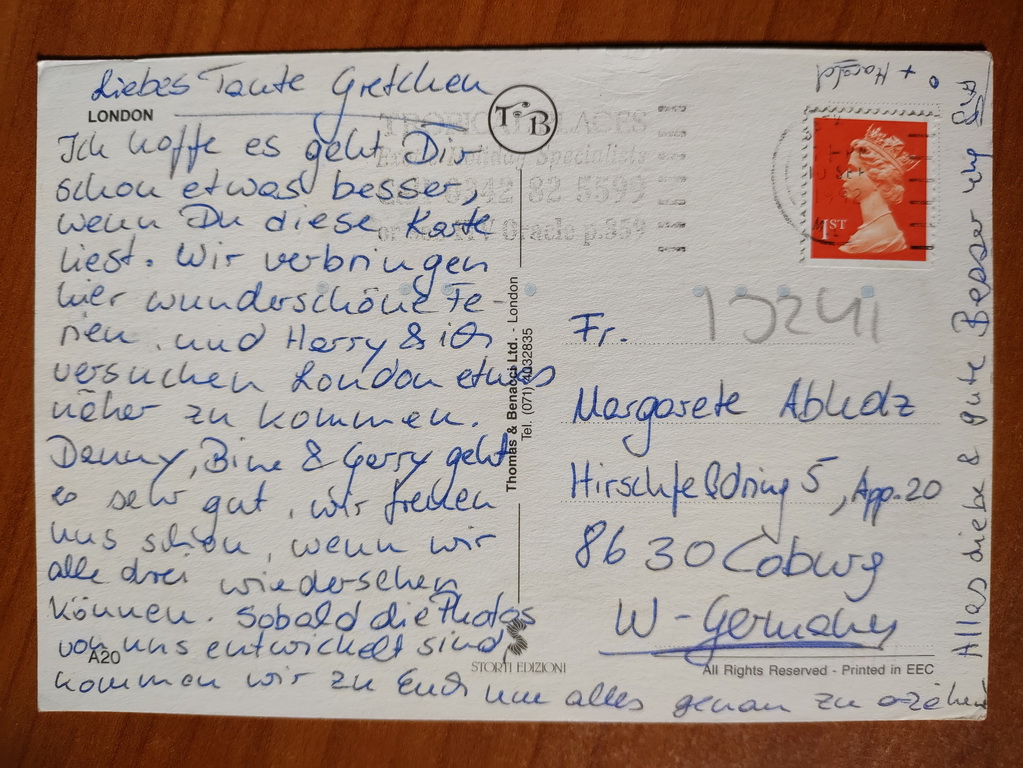 Liebes Tante Gretchen
LONDON
Ich hoffe es geht Dir
schon etwas besser,
wenn Du diese Karte
liest. Wir verbringen
hier wunderschöne Fe-
rien, und Harry & ich
versuchen London etwas
näher zu kommen.
Danny, Bine & Gerry geht
es sehr gut, wir freuen
uns schon, wenn wir
alle drei wiedersehen
können. Sobald die Photos
von uns entwickelt sind,
A20
kommen wir zu Euch um alles genau zu erzählen
Alles Liebe & gute Besserung
+ Harald
TB
TROPICAL PLACES
Exotic Holiday Specialists
0342 82 5599
or see ITV Oracle p.359
1ST
Thomas & Benacci Ltd. - London
Tel. (071) 4032835
13241
Fr.
Margarete
Hirschfeldring 5, App. 20
8630 Coburg
W-Germany
STORTI EDIZIONI
All Rights Reserved - Printed in EEC